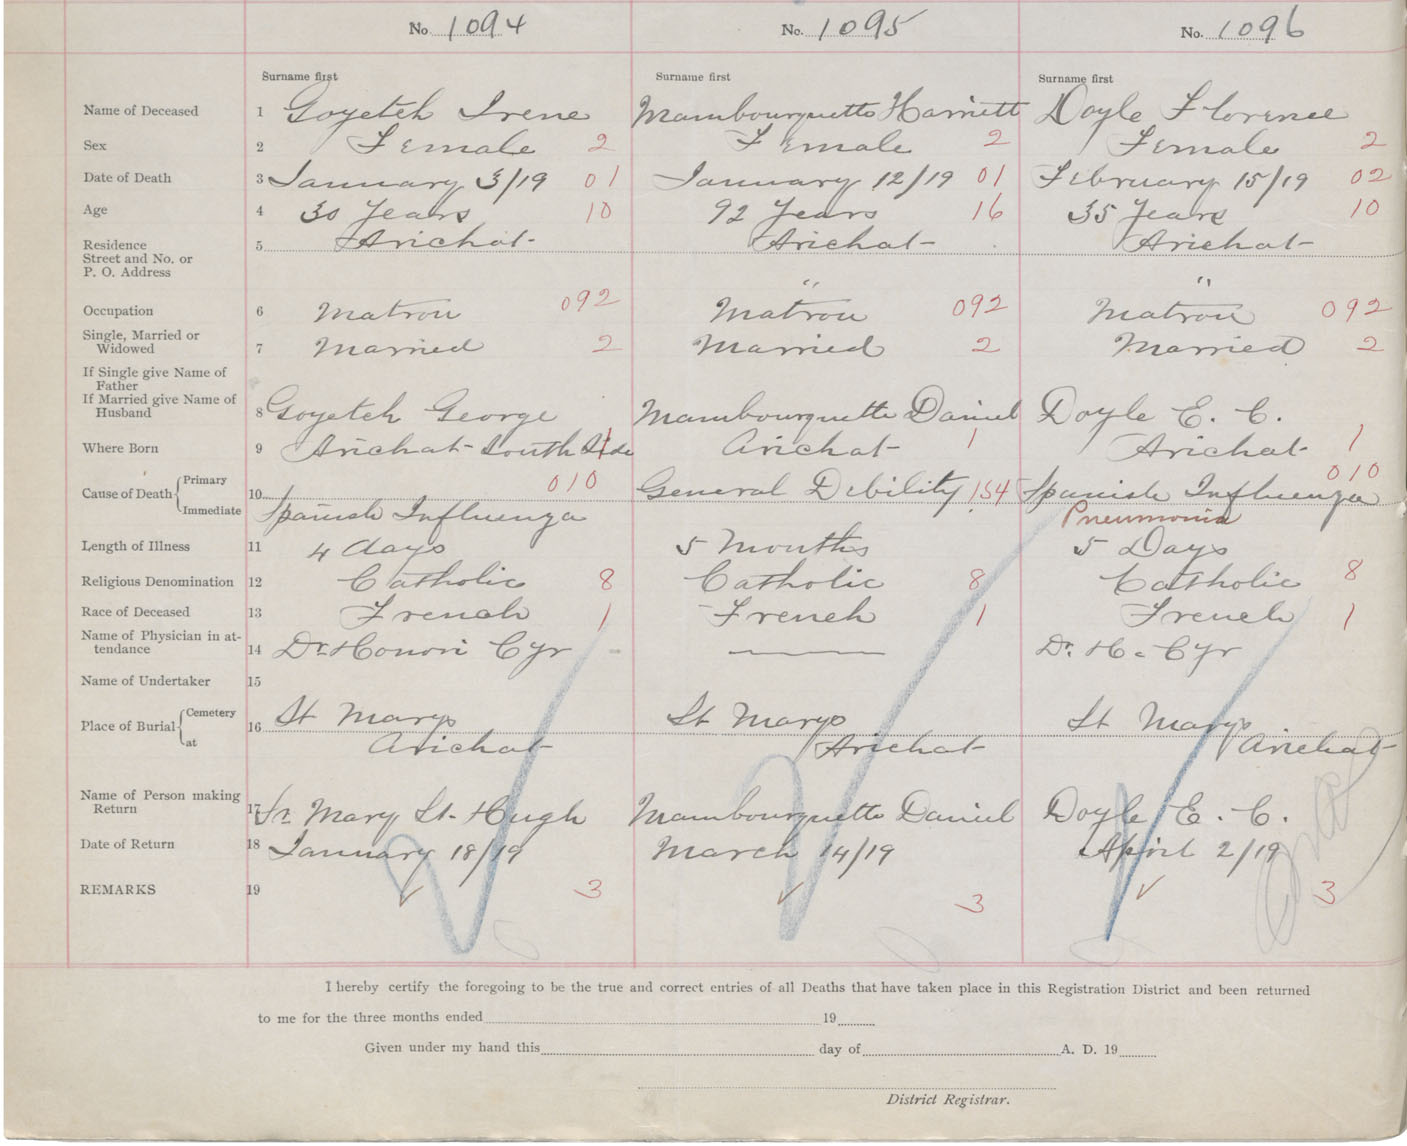 No. 1094 No. 1095 No. 1096
Surname first Surname first Surname first
Name of Deceased 1 Goyetch Irene Mambourquette Harriett Doyle Florence
Sex 2 Female 2 Female 2 Female 2
Date of Death 3 January 3/19 01 January 12/19 01 February 15/19 02
Age 4 30 Years 10 92 Years 16 35 Years 10
Residence 5 Arichat Arichat Arichat
Street and No. or
P. O. Address
" "
Occupation 6 Matron 092 Matron 092 Matron 092
Single, Married or
Widowed 7 Married 2 Married 2 Married 2
If Single give Name of
Father
If Married give Name of
Husband 8 Goyetch George Mambourquette Daniel Doyle E. C.
Where Born 9 Arichat South Side 1 Arichat 1 Arichat 1
Cause of Death Primary 10 010 General Debility 154 Spanish Influenza 010
Immediate Spanish Influenza Pneumonia
Length of Illness 11 4 days 5 Months 5 Days
Religious Denomination 12 Catholic 8 Catholic 8 Catholic 8
Race of Deceased 13 French 1 French 1 French 1
Name of Physician in at-
tendance 14 Dr. Honori Cyr — Dr. H. Cyr
Name of Undertaker 15
Place of Burial Cemetery 16 St Marys St Marys St Marys
at Arichat Arichat Arichat
Name of Person making
Return 17 Sr. Mary St. Hugh Mambourquette Daniel Doyle E. C.
Date of Return 18 January 18/19 March 14/19 April 2/19
REMARKS 19 3 3 3
I hereby certify the foregoing to be the true and correct entries of all Deaths that have taken place in this Registration District and been returned
to me for the three months ended 19
Given under my hand this day of A. D. 19
District Registrar.